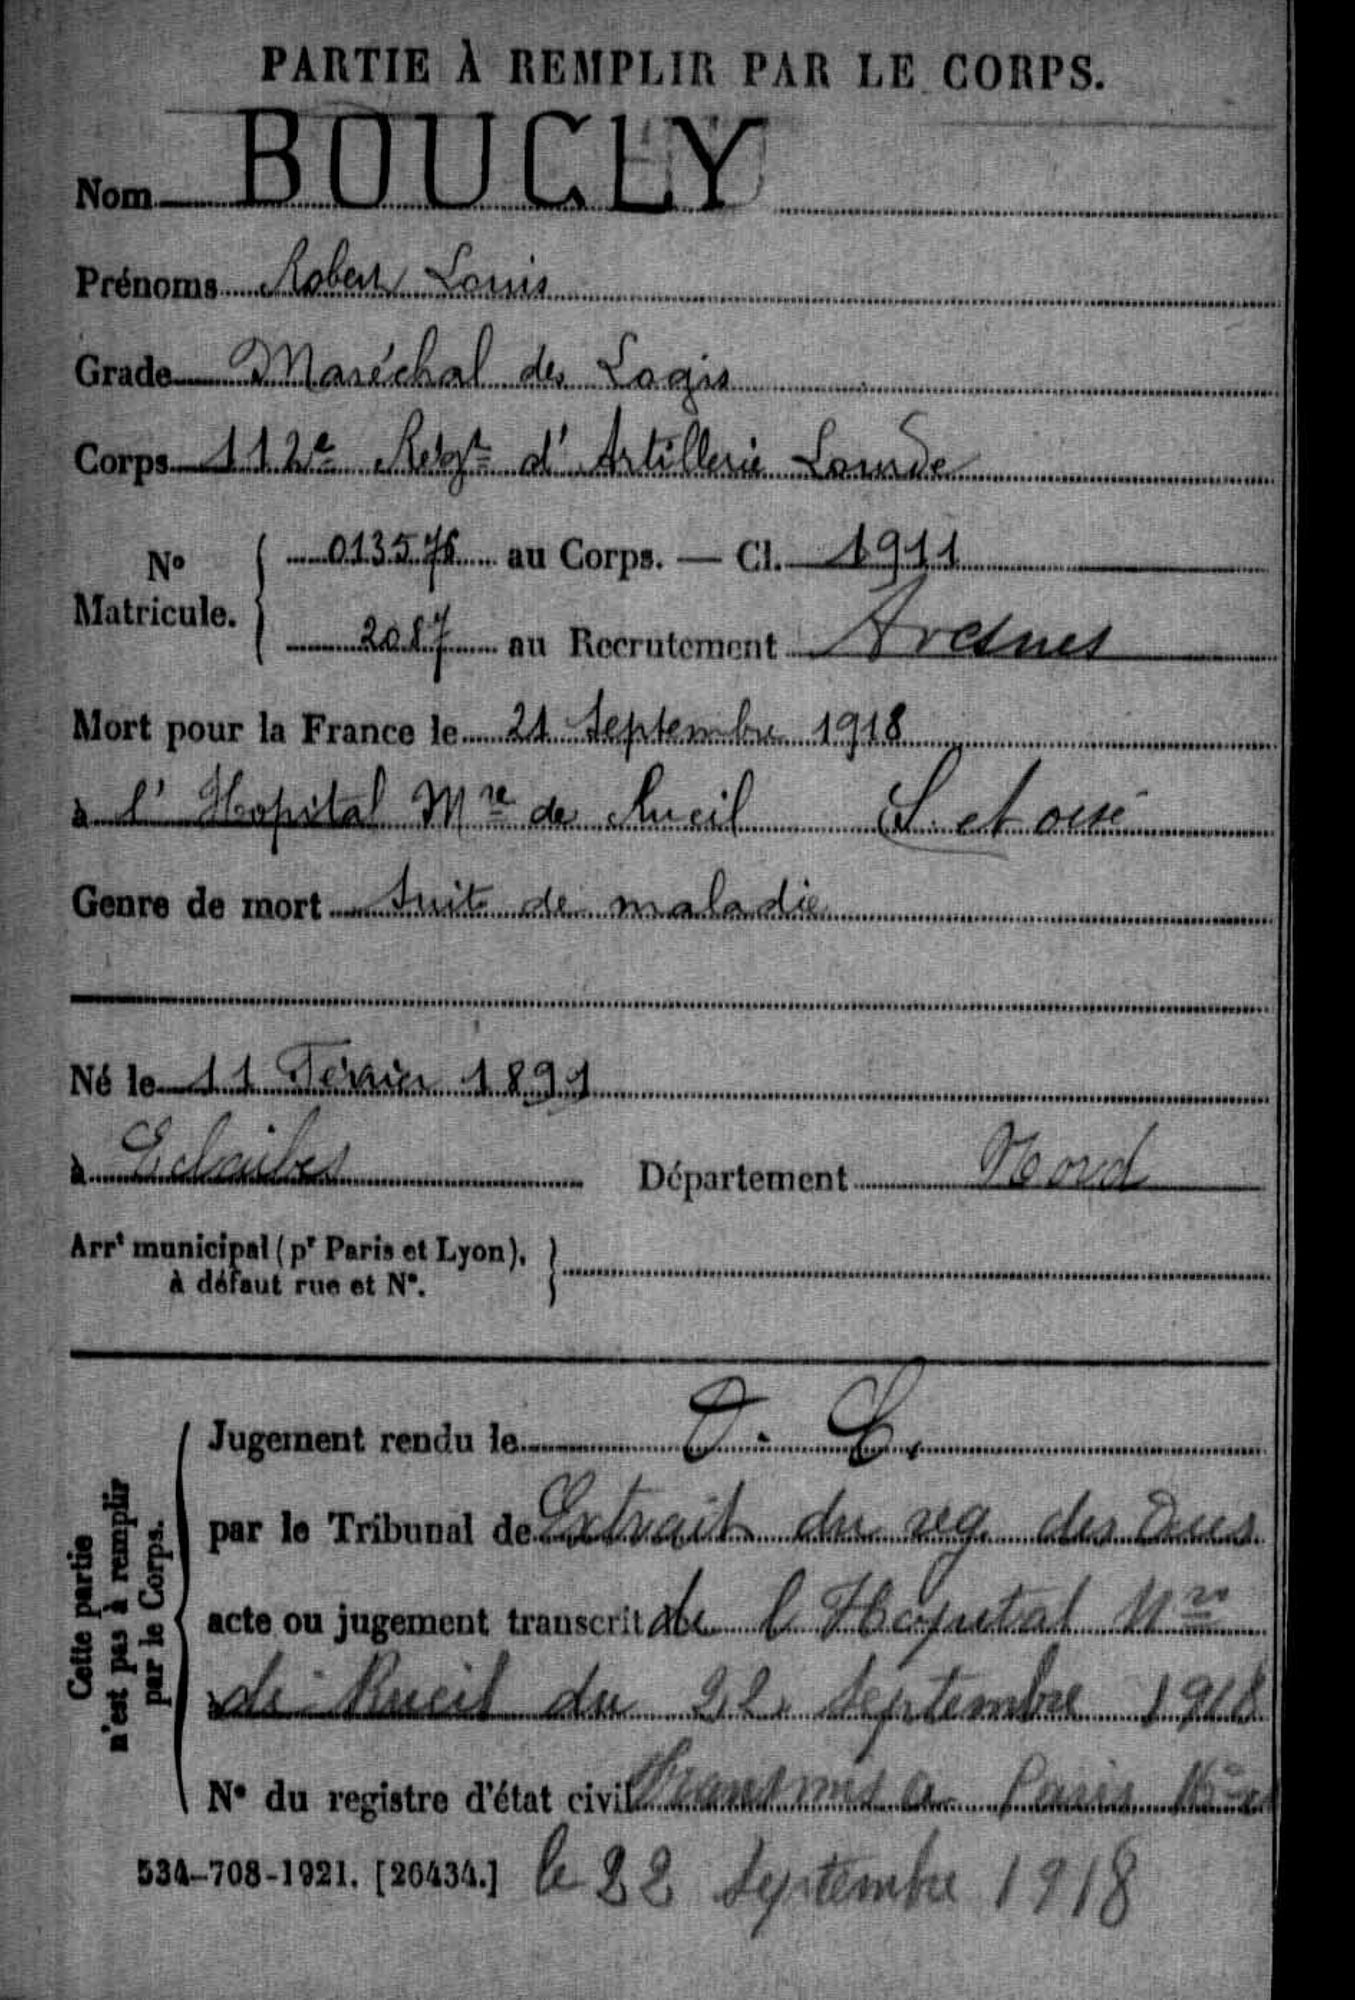 PARTIE À REMPLIR PAR LE CORPS.
Nom BOUCLY
Prénoms Robert Louis
Grade Maréchal des Logis
Corps 112e Regt d'Artillerie Lourde
No Matricule. 013576 au Corps. — Cl. 1911
2087 au Recrutement Avesnes
Mort pour la France le 21 Septembre 1918
à l'Hopital Mre de Rueil S. et oise
Genre de mort Suite de maladie
Né le 11 Février 1891
à Eclaibes Département Nord
Arrt municipal (pr Paris et Lyon),
à défaut rue et No.
Cette partie
n'est pas à remplir
par le Corps.
Jugement rendu le
par le Tribunal de Extrait du reg. des Duès
acte ou jugement transcrit de l Hopital Mre
de Rueil du 22 Septembre 1918
No du registre d'état civil Transmis a Paris 16e
534-708-1921. [26434.] le 22 Septembre 1918